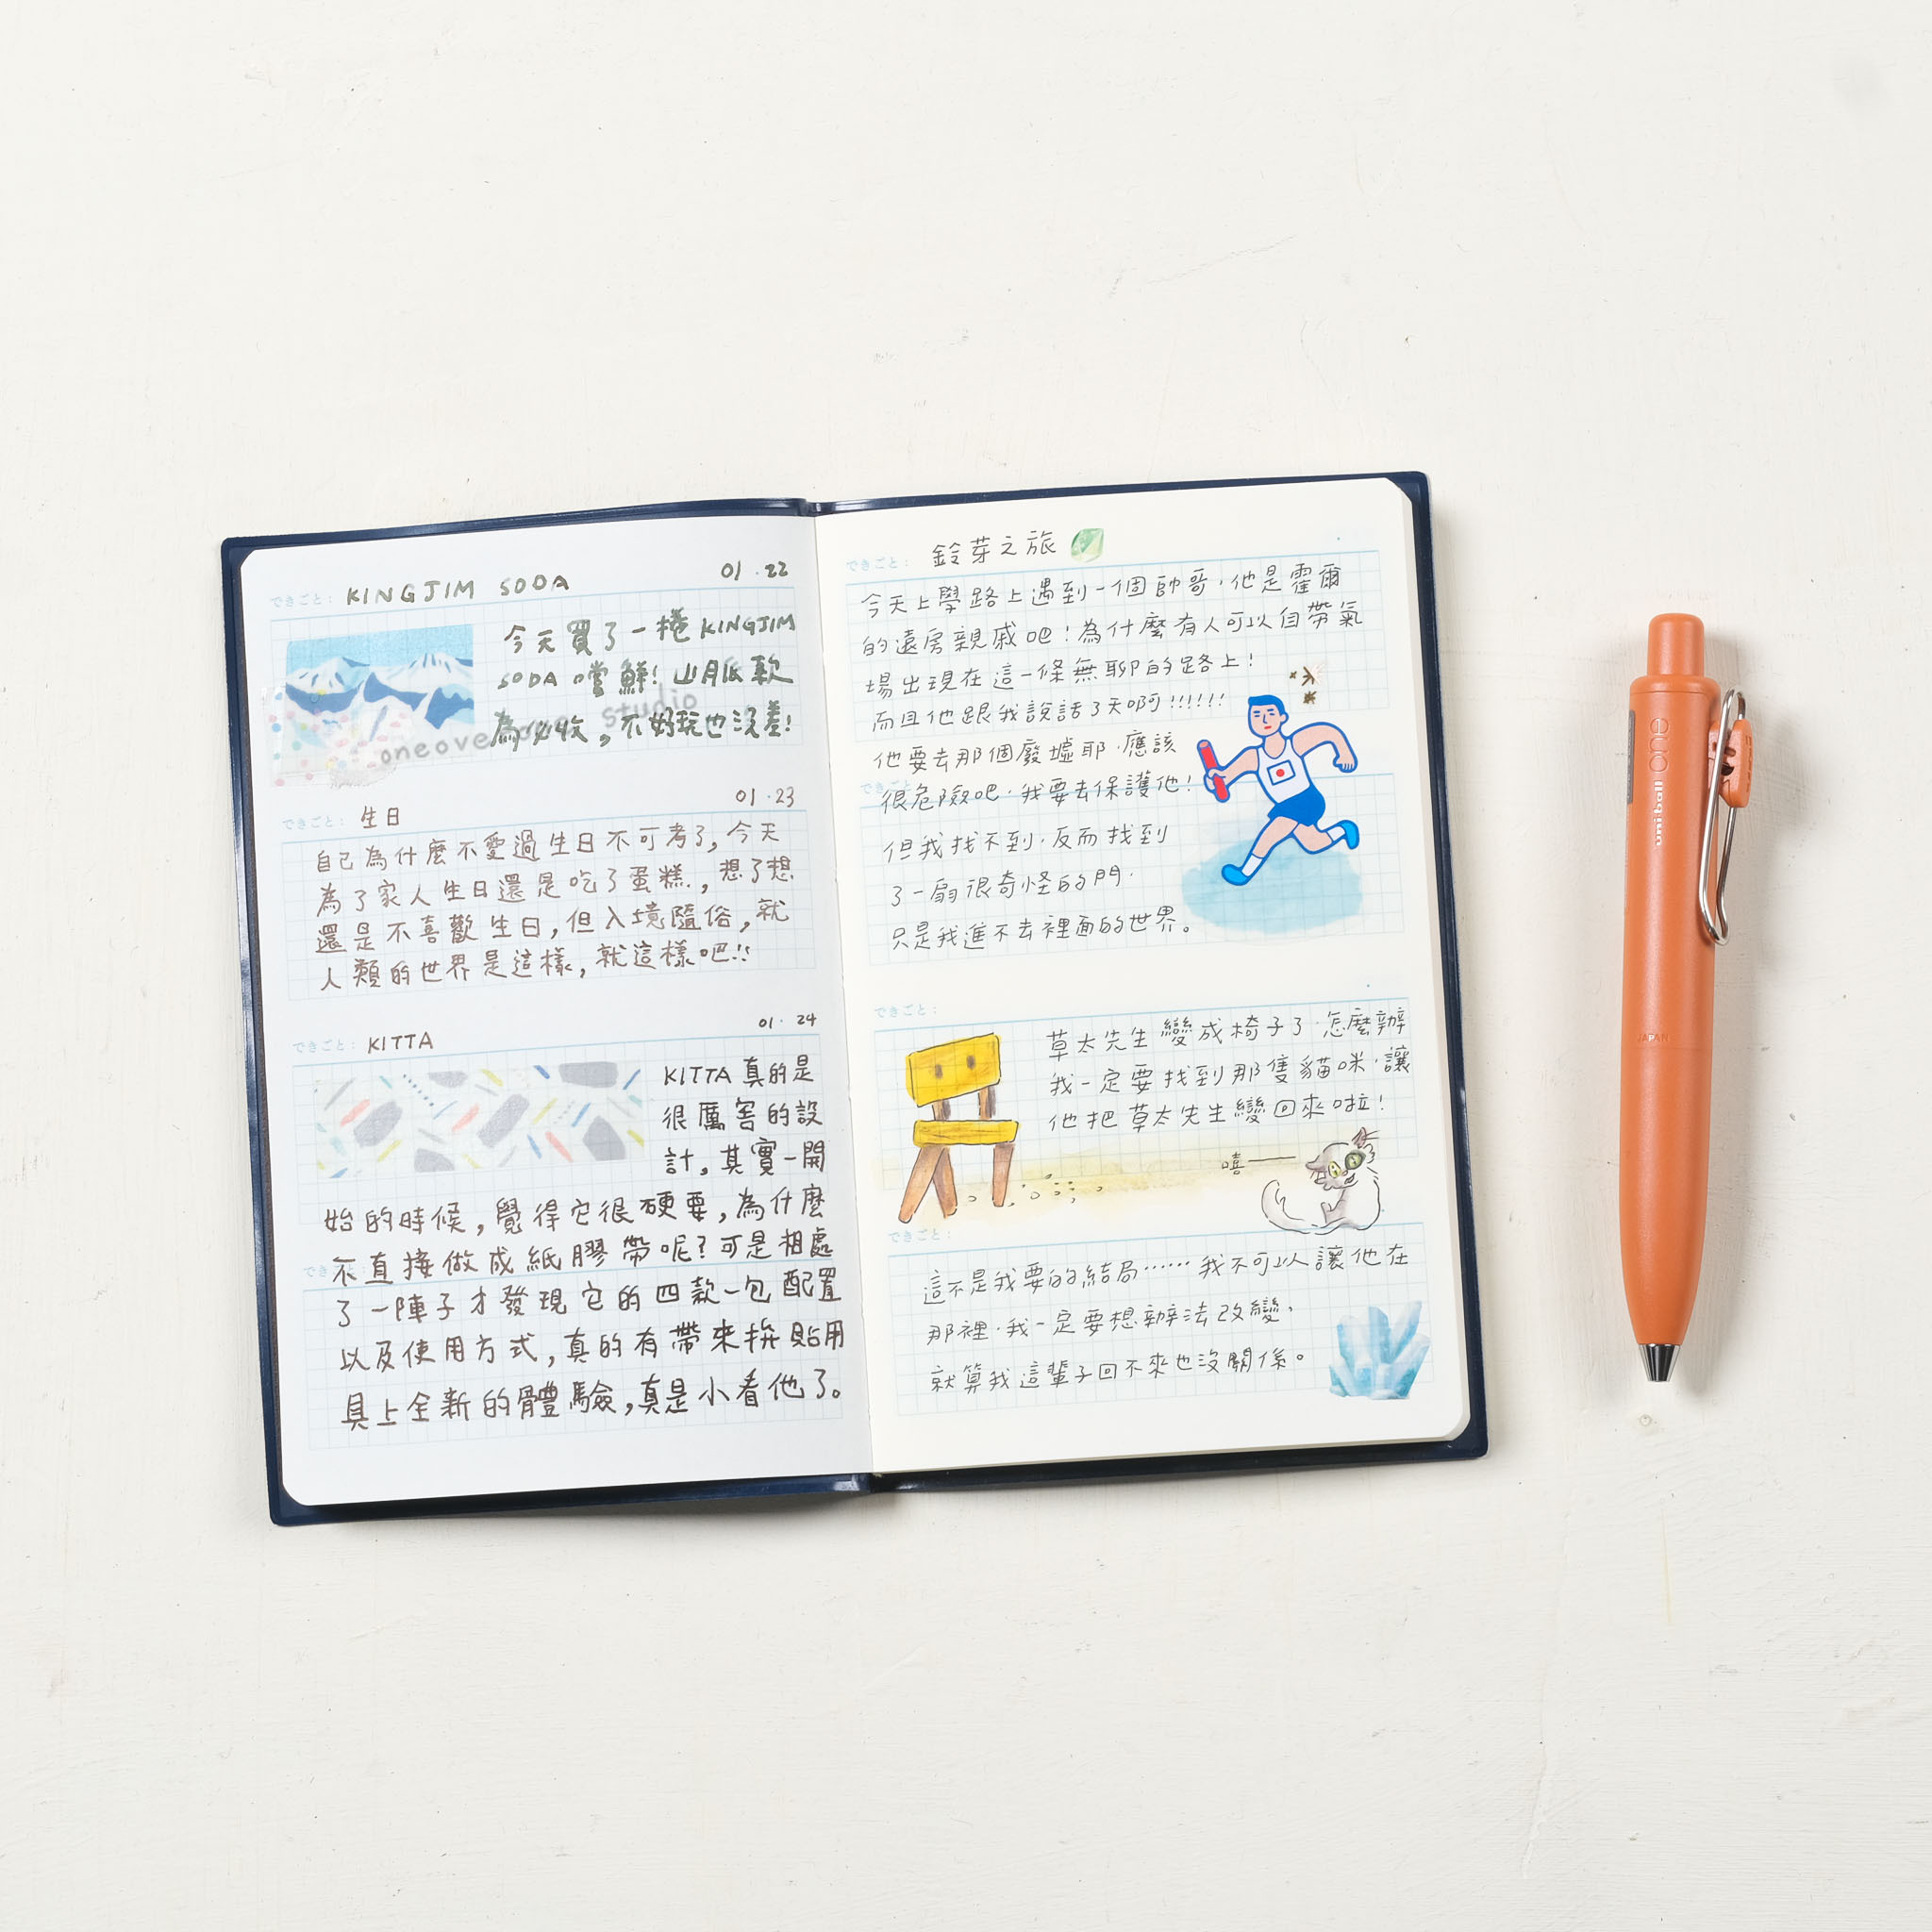 できごと: KINGJIM SODA 01.22
今天買了一捲KINGJIM
SODA嚐鮮!山月底款
為必收。不好玩也沒差!
oneover studio
できごと: 生日 01.23
自己為什麼不愛過生日不可考了,今天
為了家人生日還是吃了蛋糕,想了想
還是不喜歡生日,但入境隨俗,就
人類的世界是這樣,就這樣吧!!
できごと: KITTA 01.24
KITTA真的是
很厲害的設
計。其實一開
始的時候,覺得它很硬要,為什麼
不直接做成紙膠帶呢?可是相處
了一陣子才發現它的四款一包配置
以及使用方式,真的有帶來拚貼用
具上全新的體驗,真是小看他了。
できごと: 鈴芽之旅
今天上學路上遇到一個帥哥·他是霍爾
的遠房親戚吧!為什麼有人可以自帶氣
場出現在這一條無聊的路上!
而且他跟我說話了天啊!!!!!!
他要去那個廢墟耶·應該
很危險吧·我要去保護他!
但我找不到·反而找到
了一扇很奇怪的門·
只是我進不去裡面的世界。
できごと:
草太先生變成椅子了·怎麼辦
我一定要找到那隻貓咪·讓
他把草太先生變回來啦!
嘻——
できごと:
這不是我要的結局……我不可以讓他在
那裡·我一定要想辦法改變、
就算我這輩子回不來也沒關係。
uniball one
JAPAN